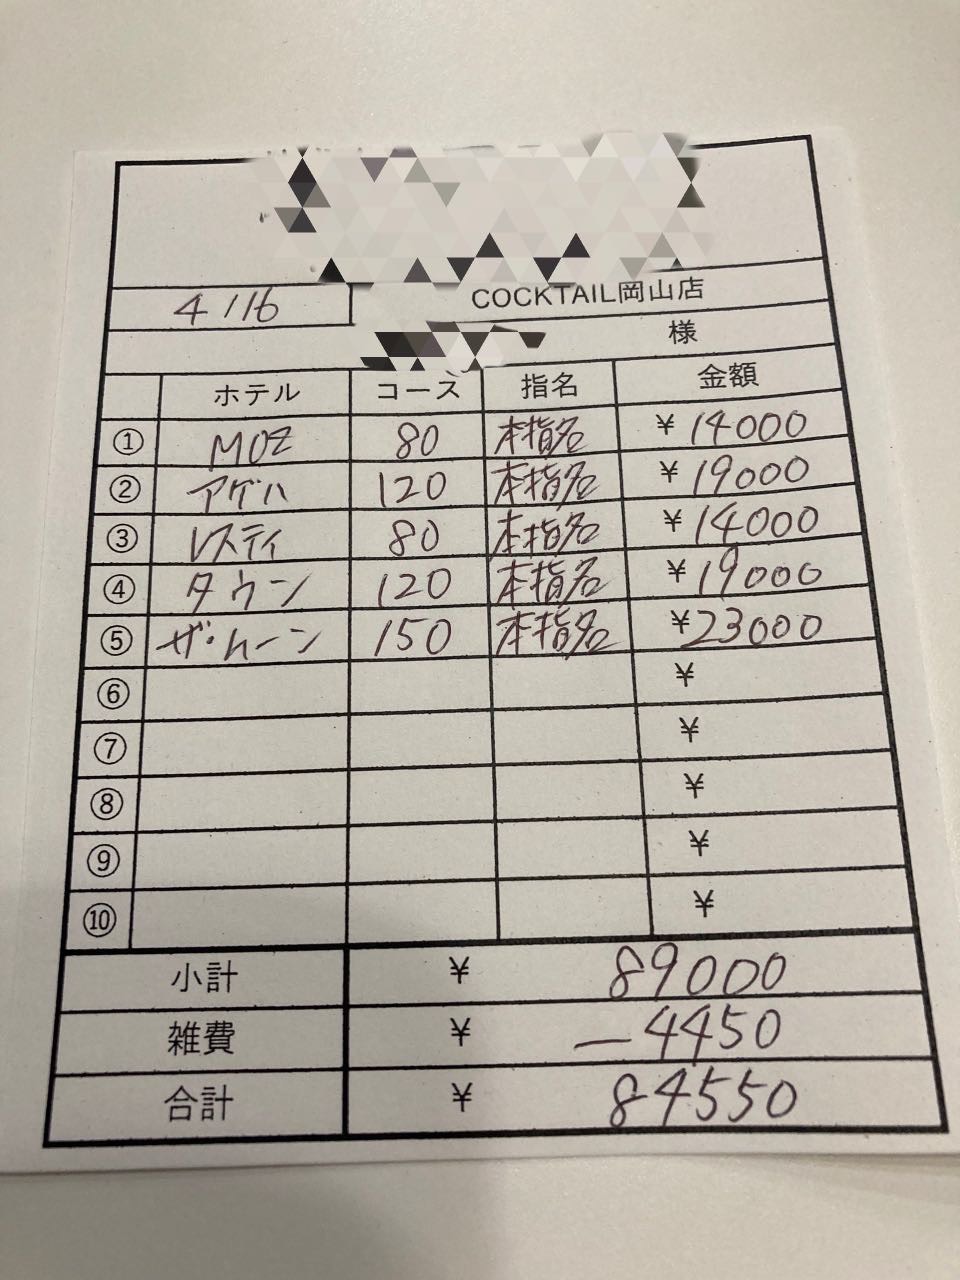 4/16
COCKTAIL岡山店
様
ホテル コース 指名 金額
① MOZ 80 本指名 ¥14000
② アゲハ 120 本指名 ¥19000
③ レスティ 80 本指名 ¥14000
④ タウン 120 本指名 ¥19000
⑤ ザ・ムーン 150 本指名 ¥23000
⑥ ¥
⑦ ¥
⑧ ¥
⑨ ¥
⑩ ¥
小計 ¥ 89000
雑費 ¥ -4450
合計 ¥ 84550